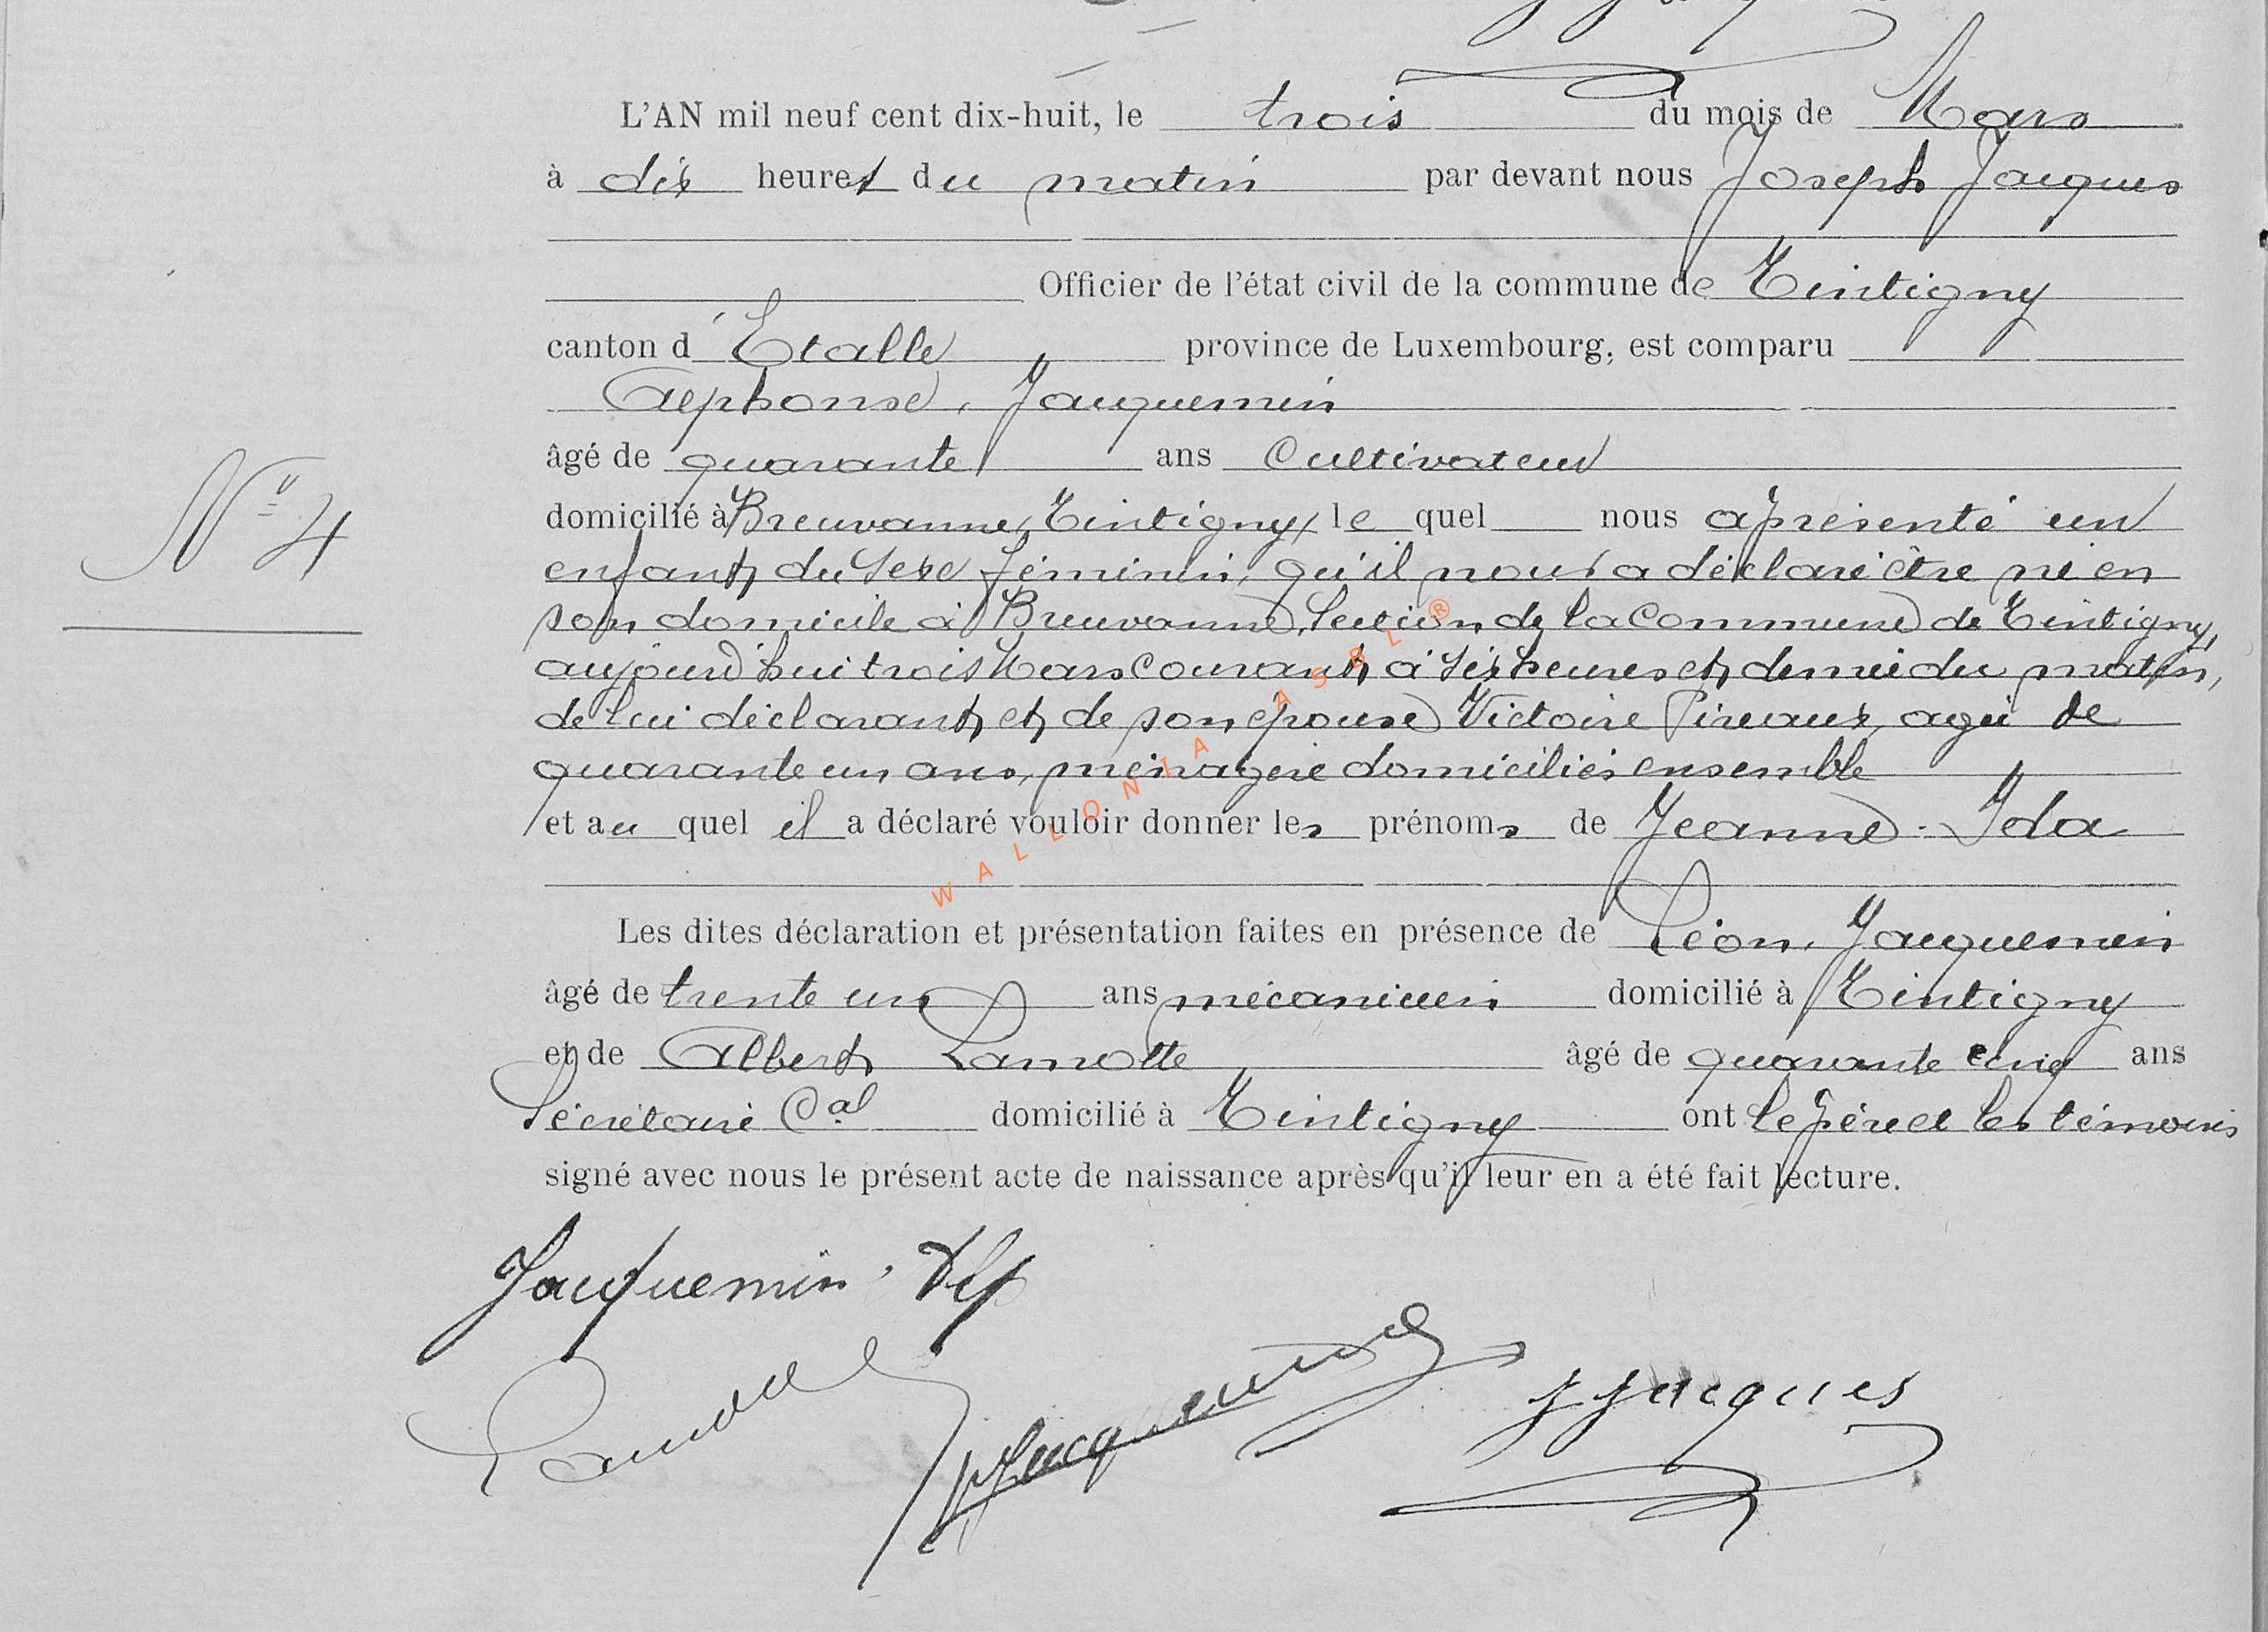 L'AN mil neuf cent dix-huit, le trois du mois de Mars
à dix heures du matin par devant nous Joseph Jacques
Officier de l'état civil de la commune de Tintigny
canton d'Etalle province de Luxembourg, est comparu
Alphonse, Jacquemin
âgé de quarante ans Cultivateur
domicilié à Breuvanne, Tintigny, lequel nous a présenté un
N° 4
enfant du sexe féminin, qu'il nous a déclaré être né en
son domicile à Breuvanne, section de la commune de Tintigny,
aujourd'hui trois Mars courant à six heures et demie du matin,
de lui déclarant et de son épouse Victoire Pireaux, agée de
quarante un ans, ménagère domiciliés ensemble
et au quel il a déclaré vouloir donner les prénoms de Jeanne-Ida
Les dites déclaration et présentation faites en présence de Léon, Jacquemin
âgé de trente un ans mécanicien domicilié à Tintigny
et de Albert Lamotte âgé de quarante cinq ans
Secrétaire Cal domicilié à Tintigny ont le père et les témoins
signé avec nous le présent acte de naissance après qu'il leur en a été fait lecture.
Jacquemin, Alp
Jacquemin
J Jacques
WALLONIA ASBL ®